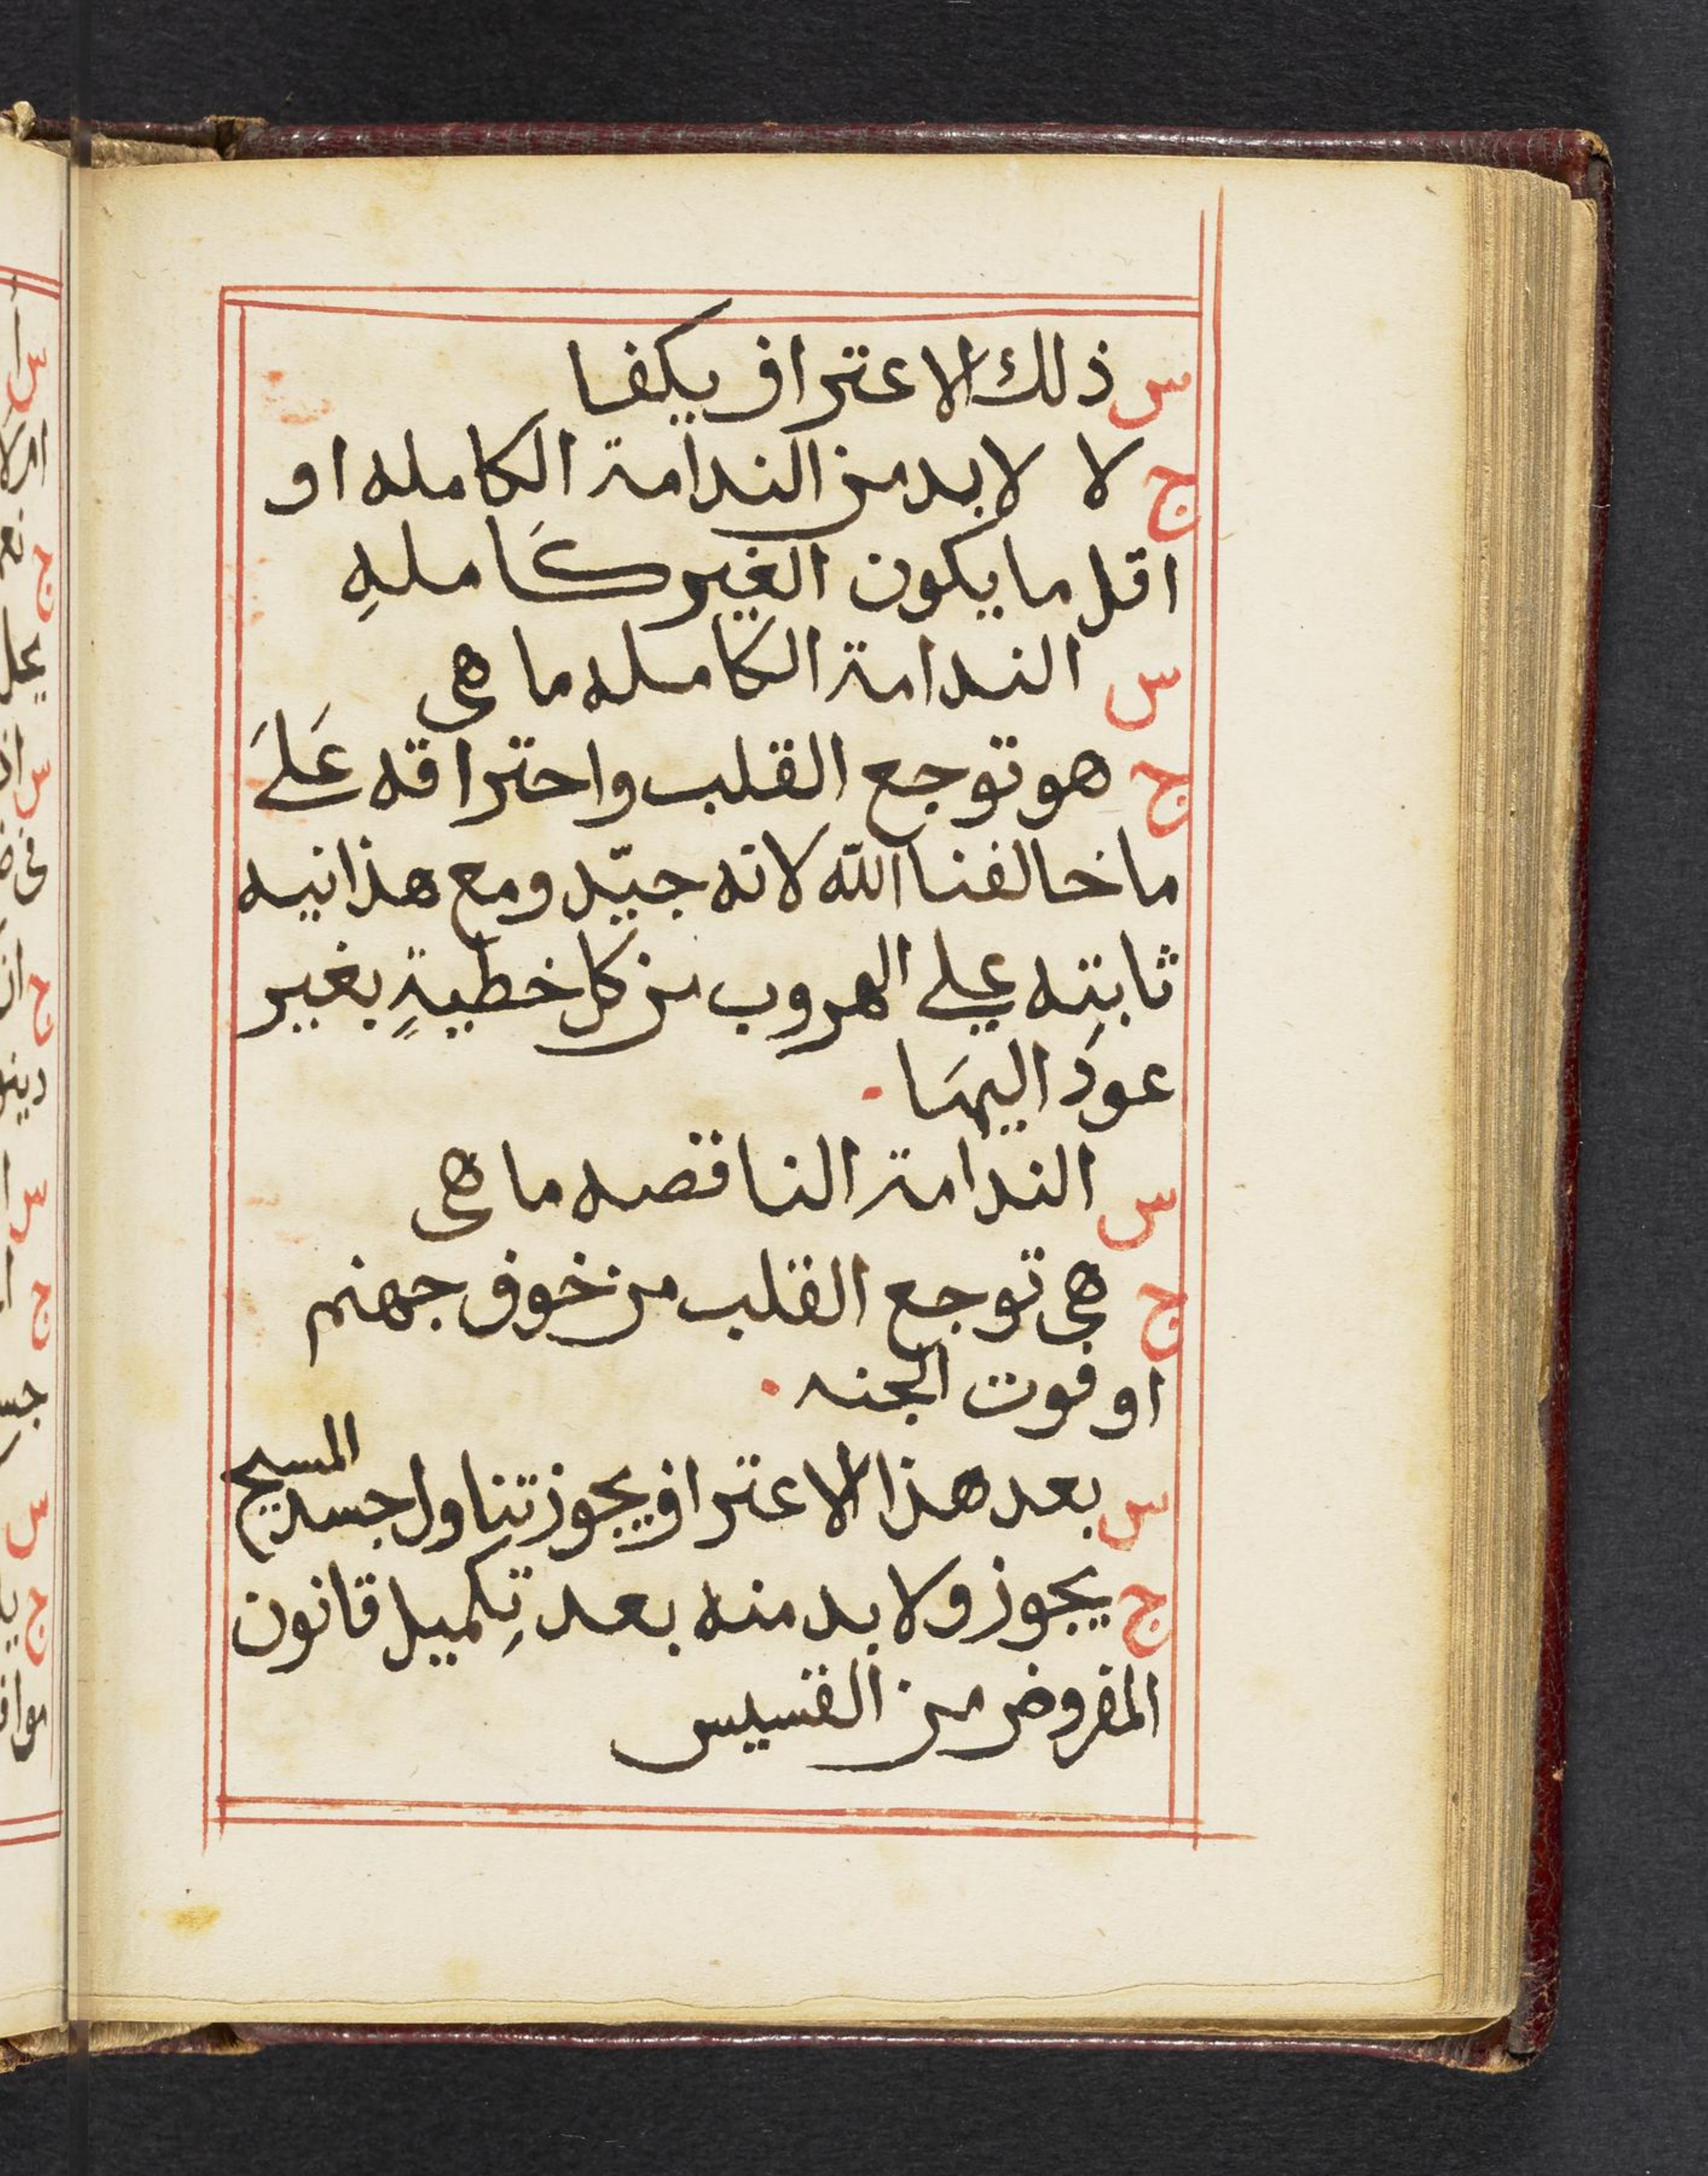 س ذلك الاعتراف يكفا
ج لا لابد من الندامة الكامله او
اقل ما يكون الغير كَاملهِ
س الندامة الكامله ما هى
ج هو توجع القلب واحتراقه عَلىَ
ما خالفنا الله لانه جيّد ومع هذا نيه
ثابته على الهروب من كل خطيةٍ بغير
عود اليهَا.
س الندامة الناقصه ما هى
ج هى توجع القلب من خوف جهنم
او فوت الجنه.
س بعد هذا الاعتراف يجوز تناول جسد المسيح
ج يجوز ولابد منه بعد تِكميل قانون
المفروض من القسيس